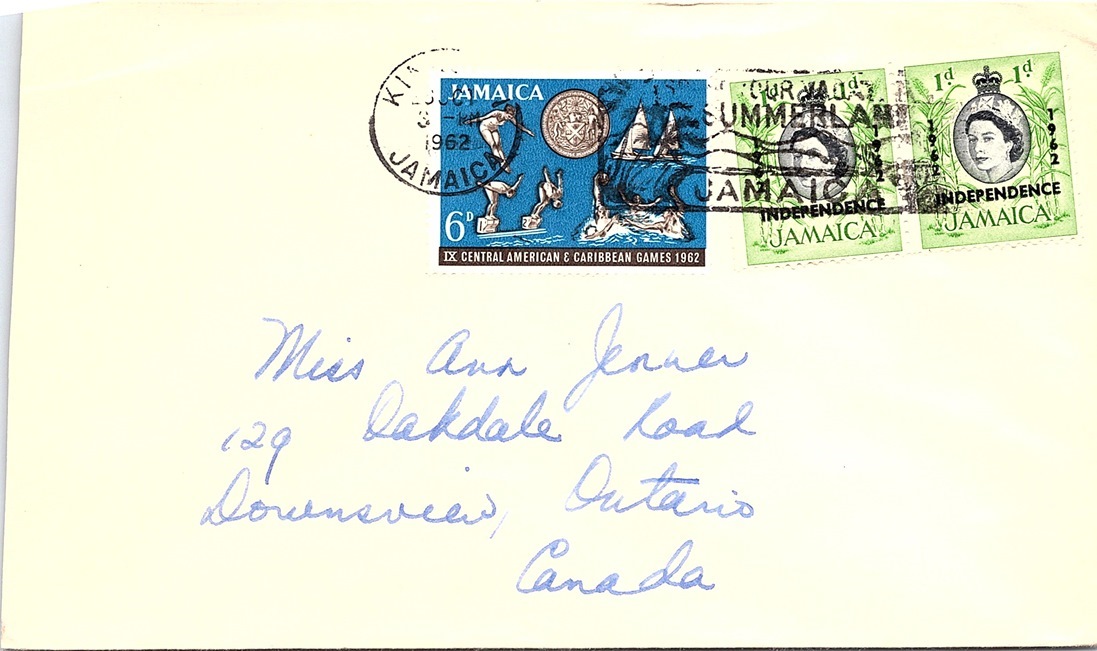 KIN
1962
JAMAICA
JAMAICA
6D
1 2
IX CENTRAL AMERICAN & CARIBBEAN GAMES 1962
YOUR
SUMMERLAND
JAMAICA
d
1962
INDEPENDENCE
JAMAICA
1d 1d
1962 1962
INDEPENDENCE
JAMAICA
Miss Ann Jenner
129 Oakdale Road
Downsview, Ontario
Canada